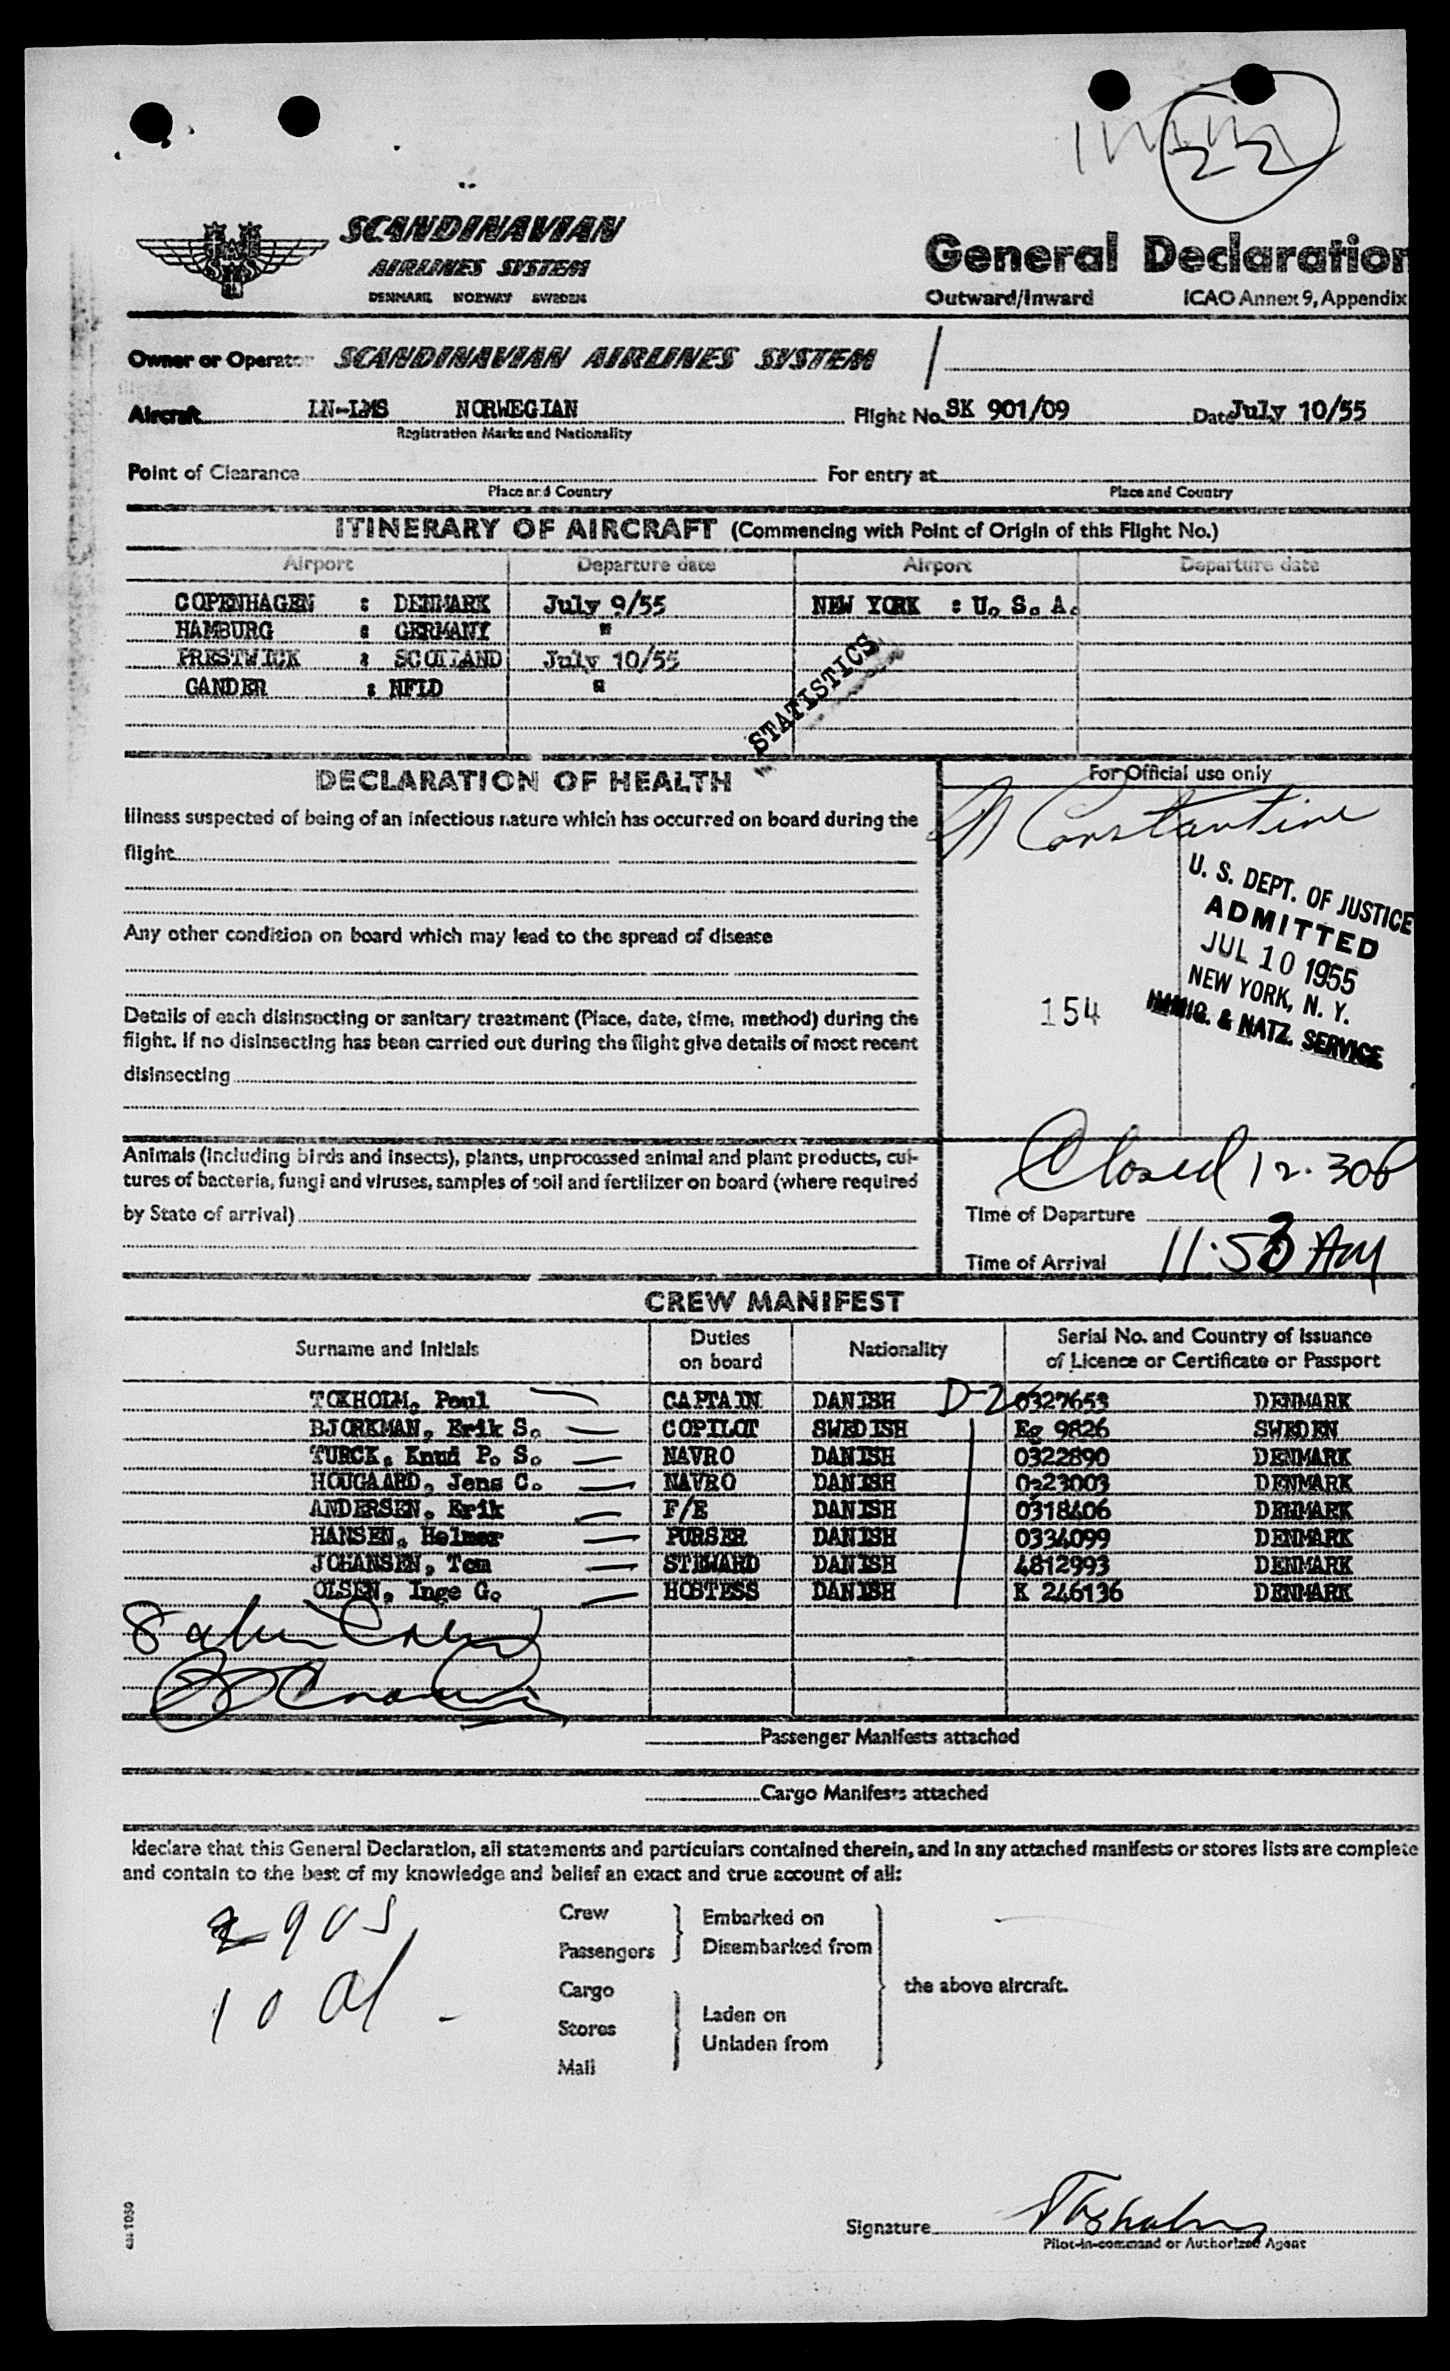 22
SCANDINAVIAN
AIRLINES SYSTEM
DENMARK NORWAY SWEDEN
General Declaration
Outward/Inward ICAO Annex 9, Appendix
Owner or Operator SCANDINAVIAN AIRLINES SYSTEM
Aircraft LN-LMS NORWEGIAN Flight No. SK 901/09 Date July 10/55
Registration Marks and Nationality
Point of Clearance For entry at
Place and Country Place and Country
ITINERARY OF AIRCRAFT (Commencing with Point of Origin of this Flight No.)
Airport Departure date Airport Departure date
COPENHAGEN : DENMARK July 9/55 NEW YORK : U. S. A.
HAMBURG : GERMANY "
PRESTWICK : SCOTLAND July 10/55
GANDER : NFLD "
STATISTICS
DECLARATION OF HEALTH
For Official use only
Illness suspected of being of an infectious nature which has occurred on board during the
flight
Constantine
U. S. DEPT. OF JUSTICE
ADMITTED
JUL 10 1955
NEW YORK, N. Y.
IMMIG. & NATZ. SERVICE
154
Any other condition on board which may lead to the spread of disease
Details of each disinsecting or sanitary treatment (Place, date, time, method) during the
flight. If no disinsecting has been carried out during the flight give details of most recent
disinsecting
Animals (including birds and insects), plants, unprocessed animal and plant products, cul-
tures of bacteria, fungi and viruses, samples of soil and fertilizer on board (where required
by State of arrival)
Closed 12.30P
Time of Departure
Time of Arrival 11.53 AM
CREW MANIFEST
Surname and Initials Duties on board Nationality Serial No. and Country of Issuance of Licence or Certificate or Passport
TOXHOLM, Poul CAPTAIN DANISH D-2 0327653 DENMARK
BJORKMAN, Erik S. COPILOT SWEDISH Eg 9826 SWEDEN
TURCK, Knud P. S. NAVRO DANISH 0322890 DENMARK
HOUGAARD, Jens C. NAVRO DANISH 0323003 DENMARK
ANDERSEN, Erik F/E DANISH 0318406 DENMARK
HANSEN, Helmer PURSER DANISH 0334099 DENMARK
JOHANSEN, Tom STEWARD DANISH 4812993 DENMARK
OLSEN, Inge G. HOSTESS DANISH K 246136 DENMARK
Passenger Manifests attached
Cargo Manifests attached
I declare that this General Declaration, all statements and particulars contained therein, and in any attached manifests or stores lists are complete
and contain to the best of my knowledge and belief an exact and true account of all:
Crew
Passengers
Embarked on
Disembarked from
Cargo
Stores
Mail
Laden on
Unladen from
the above aircraft.
Signature Toxholm
Pilot-in-command or Authorized Agent